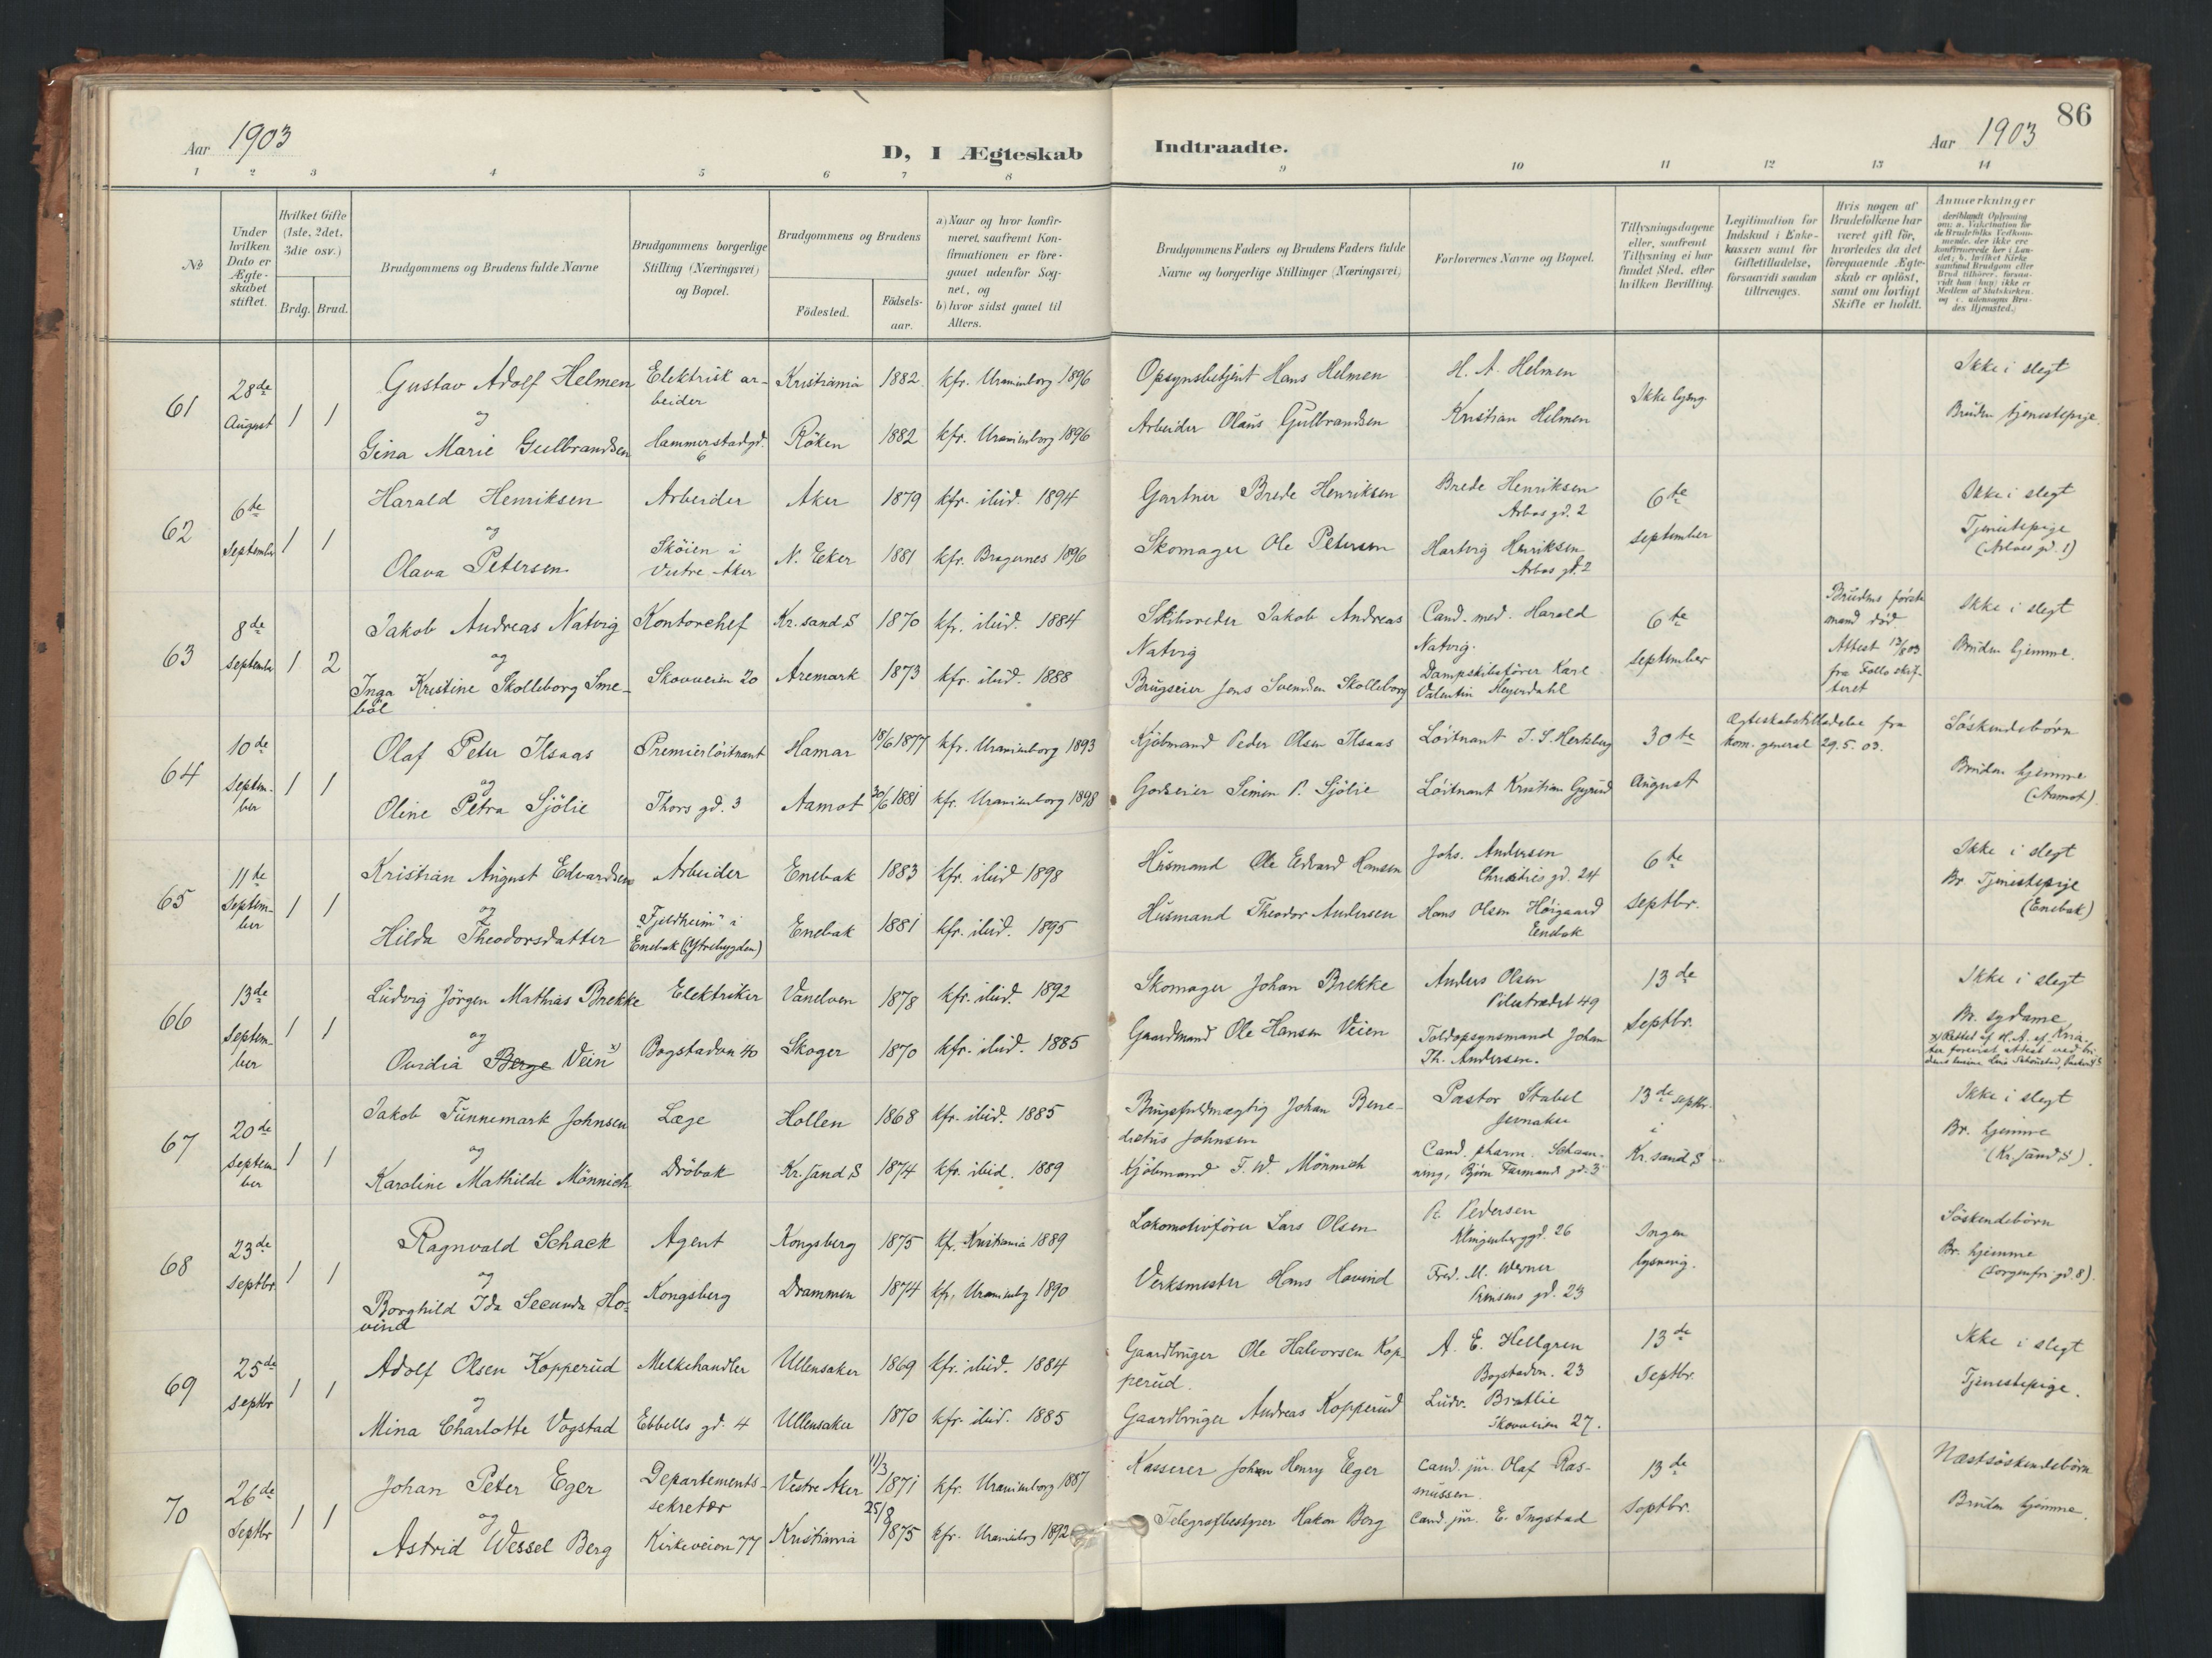 86
Aar 1903
D, I Ægteskab Indtraadte.
Aar 1903
1 2 3 4 5 6 7 8 9 10 11 12 13 14
No
Under hvilken Dato er Ægteskabet stiftet.
Hvilket Gifte (1ste, 2det, 3die osv.)
Brdg. Brud.
Brudgommens og Brudens fulde Navne
Brudgommens borgerlige Stilling (Næringsvei) og Bopæl.
Brudgommens og Brudens
Fødested.
Fødsels-aar.
a) Naar og hvor konfirmeret, saafremt Konfirmationen er foregaaet udenfor Sognet, og
b) hvor sidst gaaet til Alters.
Brudgommens Faders og Brudens Faders fulde Navne og borgerlige Stillinger (Næringsvei)
Forlovernes Navne og Bopæl.
Tillysningsdagene eller, saafremt Tillysning ei har fundet Sted, efter hvilken Bevilling.
Legitimation for Indskud i Enkekassen samt for Giftetilladelse, forsaavidt saadan tiltrænges.
Hvis nogen af Brudefolkene har været gift før, hvorledes da det foregaaende Ægteskab er opløst, samt om lovligt Skifte er holdt.
Anmerkninger
61
28de August
1 1
Gustav Adolf Helmen
og
Gina Marie Gulbrandsen
Elektrisk arbeider
Hammerstadgd. 6
Kristiania 1882 kfr. Uranienborg 1896
Røken 1882 kfr. Uranienborg 1896
Opsynsbetjent Hans Helmen
Arbeider Olaus Gulbrandsen
H. A. Helmen
Kristian Helmen
Ikke lysng.
Ikke i slegt
Bruden tjenestepige.
62
6te September
1 1
Harald Henriksen
og
Olava Petersen
Arbeider
Skøien i Vestre Aker
Aker 1879 kfr. ibid. 1894
N. Eker 1881 kfr. Bragernes 1896
Gartner Brede Henriksen
Skomager Ole Petersen
Brede Henriksen
Arbos gd. 2
Hartvig Henriksen
Arbos gd. 2
6te september
Ikke i slegt
Tjenestepige
63
8de september
1 2
Jakob Andreas Natvig
og
Inga Kristine Skolleborg Smebøl
Kontorchef
Skovveien 20
Kr.sand S 1870 kfr. ibid. 1884
Aremark 1873 kfr. ibid. 1888
Skibsreder Jakob Andreas Natvig
Brugseier Jens Svendsen Skolleborg
Cand. med. Harald Natvig.
Dampskibsfører Karl Valentin Heyerdahl
6te september
Brudens første mand død
Attest 13/8 03 fra Follo skifteret
Ikke i slegt
Bruden hjemme.
64
10de September
1 1
Olaf Peter Ilsaas
og
Oline Petra Sjølie
Premierløitnant
Thors gd. 3
Hamar 18/6 1877 kfr. Uranienborg 1893
Aamot 30/6 1881 kfr. Uranienborg 1898
Kjøbmand Peder Olsen Ilsaas
Godseier Simen P. Sjølie
Løitnant J. S. Hertzberg
Løitnant Kristian
30te August
Ægteskabstilladelse fra kom. general 29.5.03.
Søskendebørn
Bruden hjemme (Aamot).
65
11te September
1 1
Kristian August Edvardsen
og
Hilda Theodorsdatter
Arbeider
"Fjeldheim" i Enebak (Ytrebygden)
Enebak 1883 kfr. ibid 1898
Enebak 1881 kfr. ibid. 1895
Husmand Ole Edvard Hansen
Husmand Theodor Andersen
Johs. Andersen
Christies gd. 24
Hans Olsen Høigaard
Enebak
6te septbr.
Ikke i slegt
Br. Tjenestepige (Enebak)
66
13de September
1 1
Ludvig Jörgen Mathias Brekke
og
Ovidia Berge Veien x)
Elektriker
Bogstadvn 40
Vanelven 1878 kfr. ibid. 1892
Skoger 1870 kfr. ibid. 1885
Skomager Johan Brekke
Gaardmand Ole Hansen Veien
Anders Olsen
Pilestrædet 49
Toldopsynsmand Johan Th. Andersen.
13de Septbr.
Ikke i slegt
Br. sydame
67
20de September
1 1
Jakob Funnemark Johnsen
og
Karoline Mathilde Mönnich
Læge
Drøbak
Hollen 1868 kfr. ibid. 1885
Kr.sand S 1874 kfr. ibid. 1889
Brugsfuldmægtig Johan Benedictus Johnsen
Kjøbmand F. W. Mönnich
Pastor Stabel
Jevnaker
Cand. pharm. Schaanning, Bjørn Farmands gd. 3
13de septbr. i Kr.sand S
Ikke i slegt
Br. hjemme (Kr.sand S).
68
23de septbr.
1 1
Ragnvald Schack
og
Borghild Ida Secunda Hovind
Agent
Kongsberg
Kongsberg 1875 kfr. Kristiania 1889
Drammen 1874 kfr. Uranienbg 1890
Lokomotivfører Lars Olsen
Verksmester Hans Hovind
P. Pedersen
Klingenberggd. 26
Fred. M. Werner
Prinsens gd. 23
Ingen lysning.
Søskendebørn
Br. hjemme (Sorgenfri gd. 8).
69
25de septbr
1 1
Adolf Olsen Kopperud
og
Mina Charlotte Vogstad
Melkehandler
Ebbells gd. 4
Ullensaker 1869 kfr. ibid. 1884
Ullensaker 1870 kfr. ibid. 1885
Gaardbruger Ole Halvorsen Kopperud.
Gaardbruger Andreas Kopperud
A. E. Hellgren
Bogstadvn. 23
Ludv. Bratlie
Skovveien 27.
13de Septbr.
Ikke i slegt
Tjenestepige.
70
26de Septbr
1 1
Johan Peter Eger
og
Astrid Wessel Berg
Departementssekretær
Kirkeveien 77
Vestre Aker 11/3 1871 kfr. Uranienborg 1887
Kristiania 25/8 1875 kfr. Uranienborg 1892
Kasserer Johan Henry Eger
Telegrafbestyrer Hakon Berg
Cand. jur. Olaf Rasmussen.
Cand. jur. E. Ingstad
13de Septbr.
Næstsøskendebørn
Bruden hjemme.